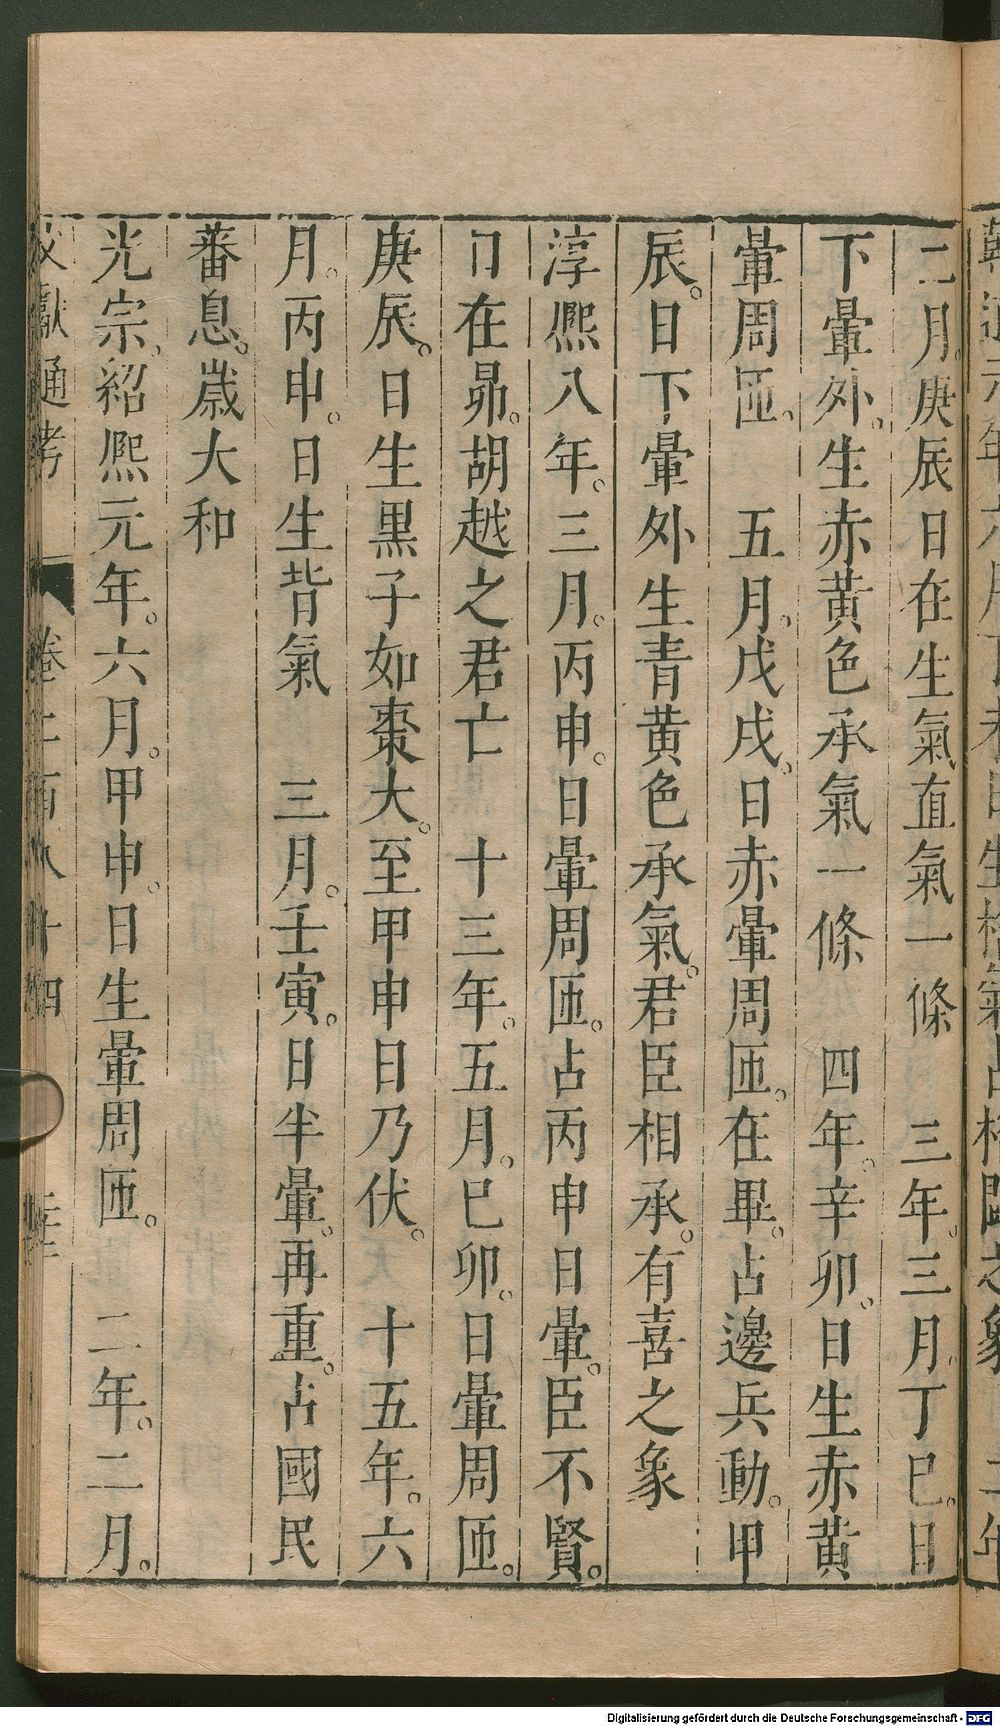 二月庚辰日在生氣直氣一條　三年三月丁巳日
下暈外生赤黃色承氣一條　四年辛卯日生赤黃
暈周匝　五月戊戌日赤暈周匝在畢占邊兵動甲
辰日下暈外生青黃色承氣君臣相承有喜之象
淳熙八年三月丙申日暈周匝占丙申日暈臣不賢
日在昴胡越之君亡　十三年五月巳卯日暈周匝
庚辰日生黑子如棗大至甲申日乃伏　十五年六
月丙申日生背氣　三月壬寅日半暈再重占國民
蕃息歲大和
光宗紹熙元年六月甲申日生暈周匝　二年二月
文獻通考　卷二百八十四
Digitalisierung gefördert durch die Deutsche Forschungsgemeinschaft - DFG